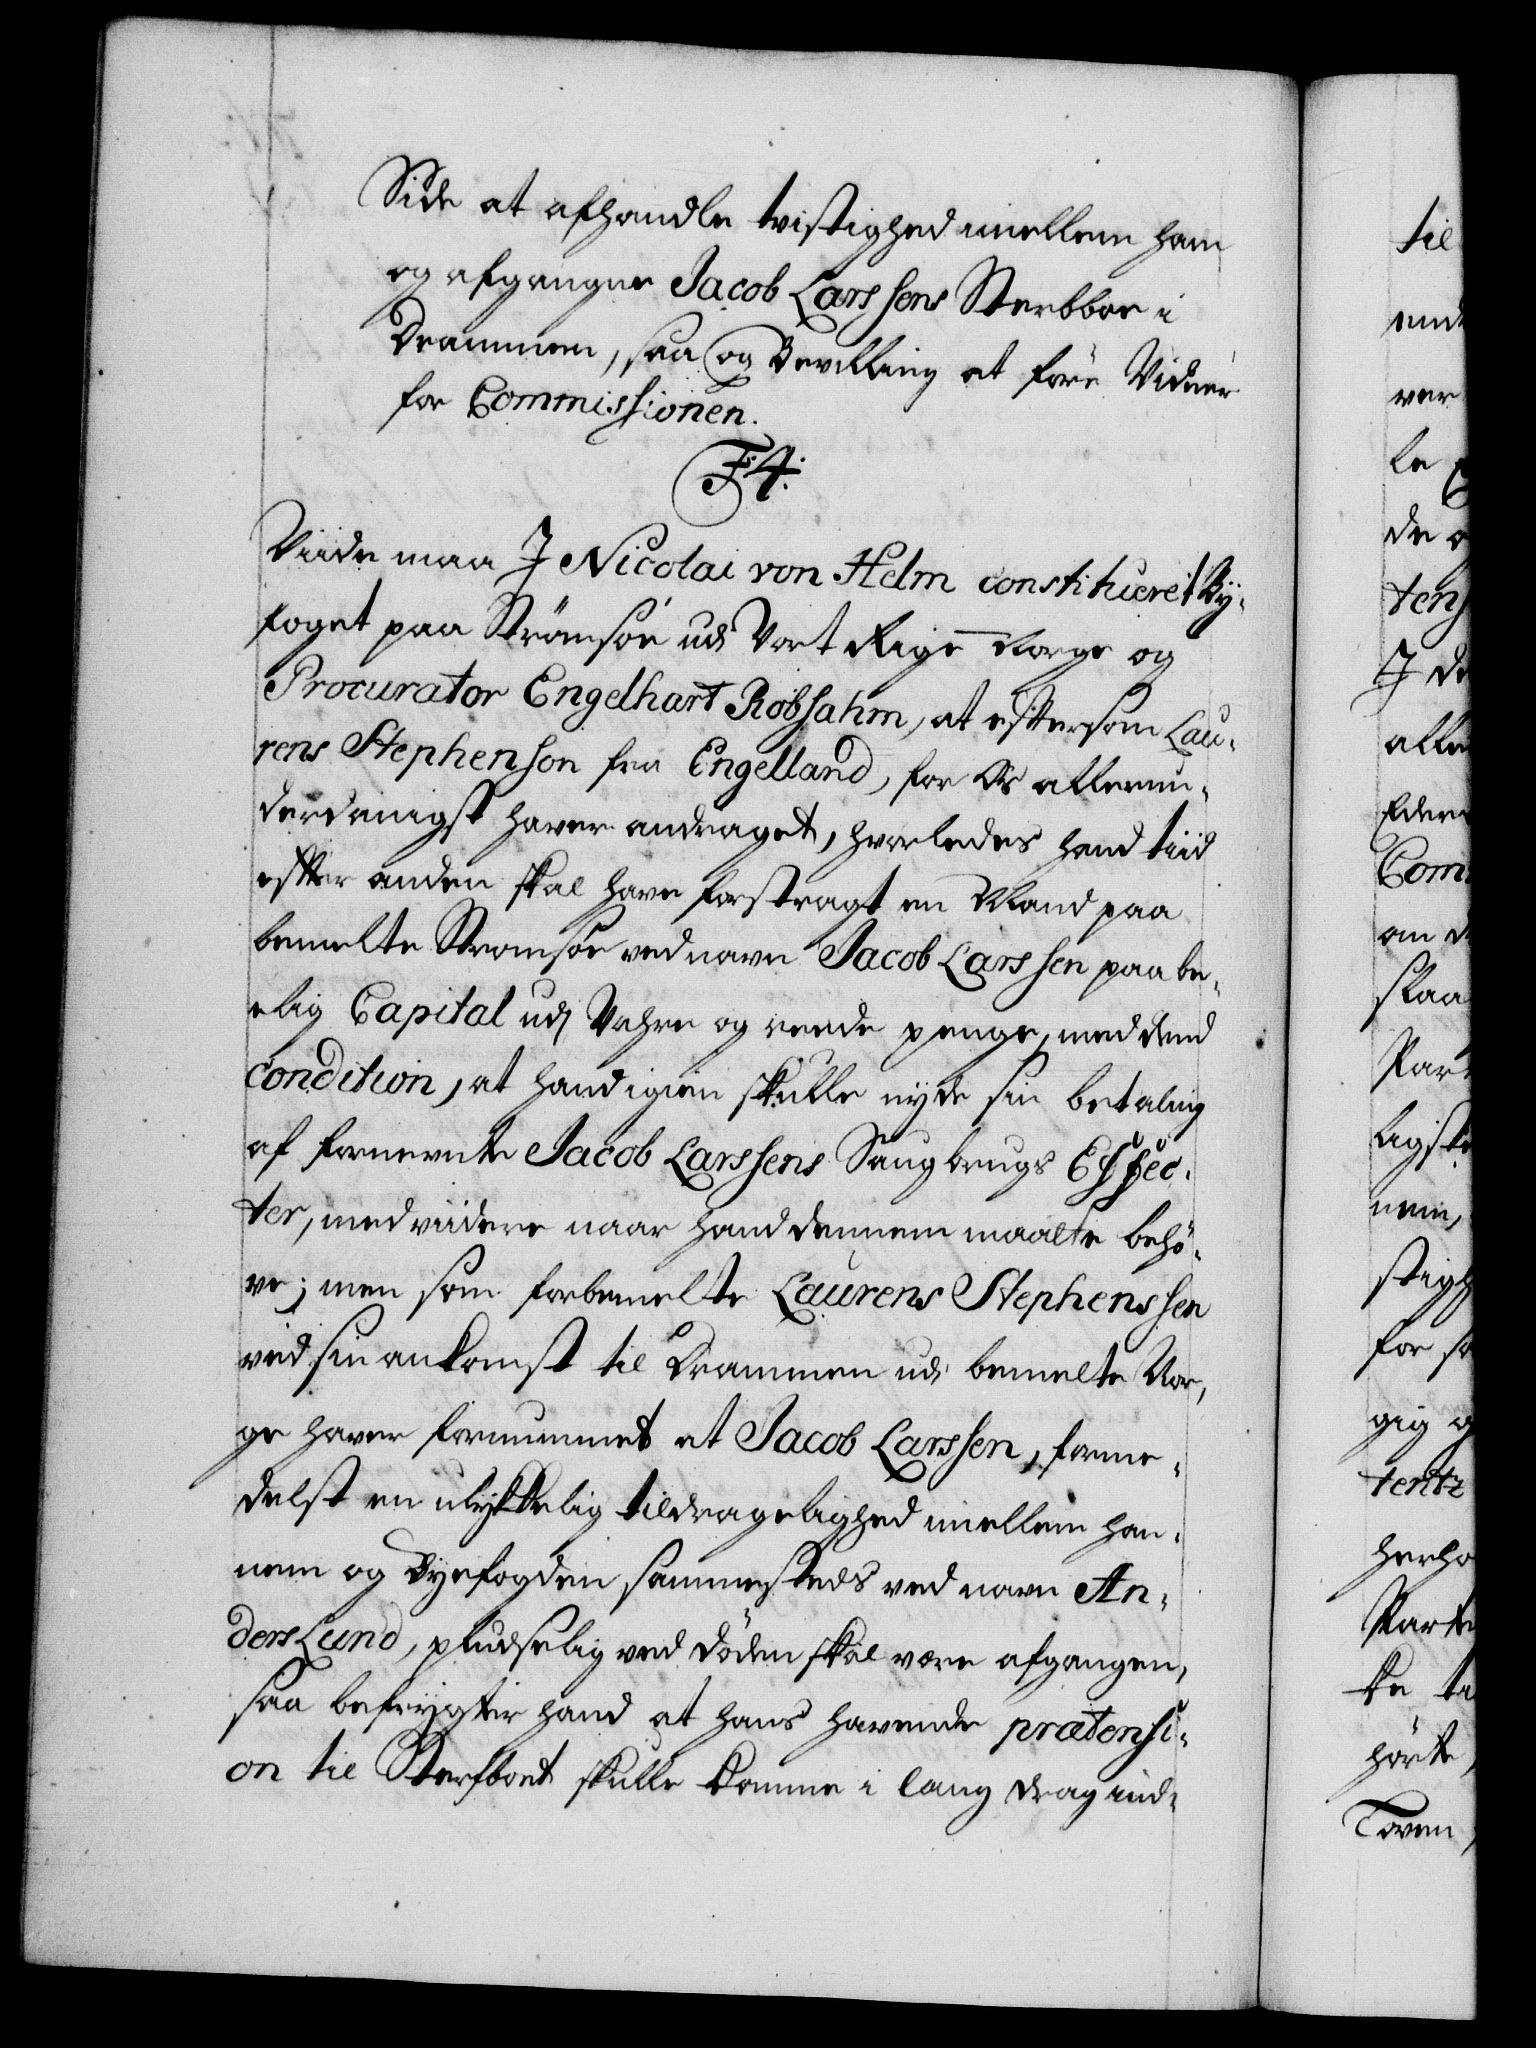 Side at afhandle tvistighed imellem ham
og afgangne Jacob Larssens Sterbboe i
Drammen, saa og Bevilling at före Vidner
for Commissionen.
F: 4:
Viide maa J Nicolai von Helm constitueret By-
foget paa Strömsöe udi Vort Rige Norge og
Procurator Engelhart Robsahm, at eftersom Lau-
rens Stephenson fra Engelland, for Os allerun-
derdanigst haver andraget, hvorledes hand tiid
efter anden skal have forstragt en Mand paa
bemelte Strømsöe ved navn Jacob Larssen paa be-
elig Capital udi Vahre og reede penge, med dend
condition, at hand igien skulle nyde sin betaling
af fornevnte Jacob Larssens Saugbrugs Effec-
ter, med viidere naar hand dennem maatte behö-
ve; men som forbemelte Laurens Stephenssen
ved sin ankomst til Drammen udi bemelte Nor-
ge haver fornummet at Jacob Larssen, forme-
delst en ulykkelig tildragelighed imellem han-
nem og Byefogden sammesteds ved navn An-
ders Lund, pludselig ved döden skal være afgangen,
saa befrygter hand at hans havende prætensi-
on til Sterfboet skulle komme i lang drag ind-
til
ver
le
de
tens
J
alle
Eders
Com
om
slaa
Part
ligste
nem,
stigh
for
gig
tentz
herho
Parte
ke
hörte,
Toven